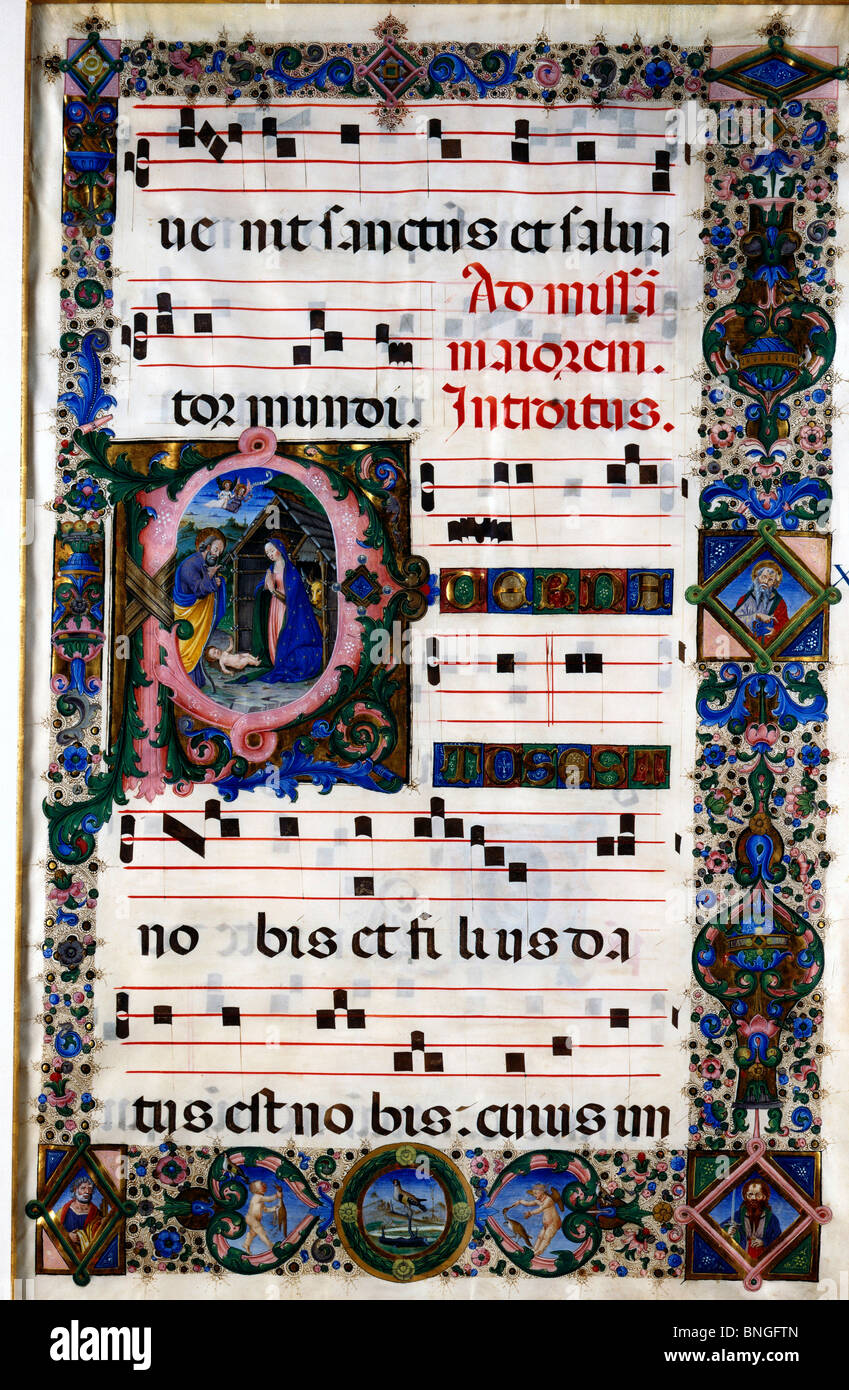 ue nit sanctus et salua
Ad missā
maiorem.
tor mundi. Introitus.
P UERNA
TUSEST
no bis et fi lius da
tus est no bis: cuius im
X
alamy
Image ID: BNGFTN
www.alamy.com